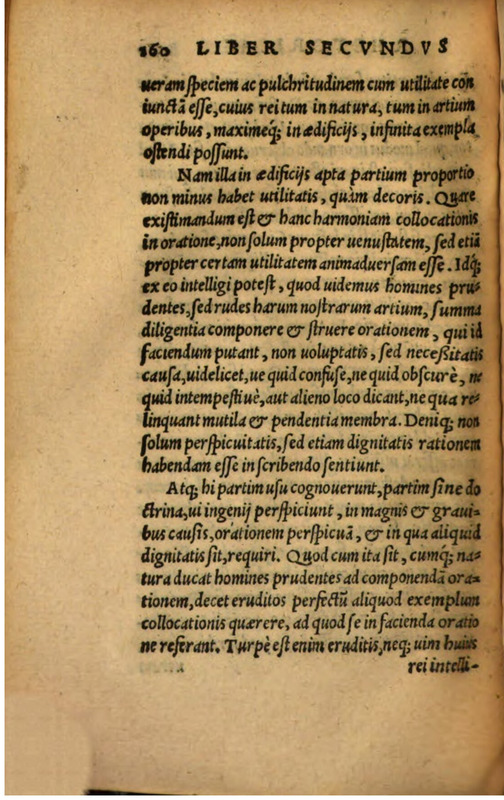 160 LIBER SECVNDVS
ueram speciem ac pulchritudinem cum utilitate con
iunctã esse, cuius rei tum in natura, tum in artium
operibus, maximeq́; in ædificijs, infinita exempla
ostendi possunt.
Nam illa in ædificijs apta partium proportio
non minus habet utilitatis, quàm decoris. Quare
existimandum est & hanc harmoniam collocationis
in oratione, non solum propter uenustatem, sed etiã
propter certam utilitatem animaduersam esse. Idq́;
ex eo intelligi potest, quod uidemus homines pru-
dentes, sed rudes harum nostrarum artium, summa
diligentia componere & struere orationem, qui id
faciendum putant, non voluptatis, sed neceßitatis
causa, uidelicet, ue quid confuse, ne quid obscurè, ne
quid intempestiuè, aut alieno loco dicant, ne qua re-
linquant mutila & pendentia membra. Deniq; non
solum perspicuitatis, sed etiam dignitatis rationem
habendam esse in scribendo sentiunt.
Atq; hi partim usu cognouerunt, partim sine do
ctrina, ui ingenij perspiciunt, in magnis & graui-
bus causis, orationem perspicuã, & in qua aliquid
dignitatis sit, requiri. Quod cum ita sit, cumq; na-
tura ducat homines prudentes ad componendã ora-
tionem, decet eruditos perfectũ aliquod exemplum
collocationis quærere, ad quod se in facienda oratio
ne referant. Turpè est enim eruditis, neq; uim huius
rei intelli-